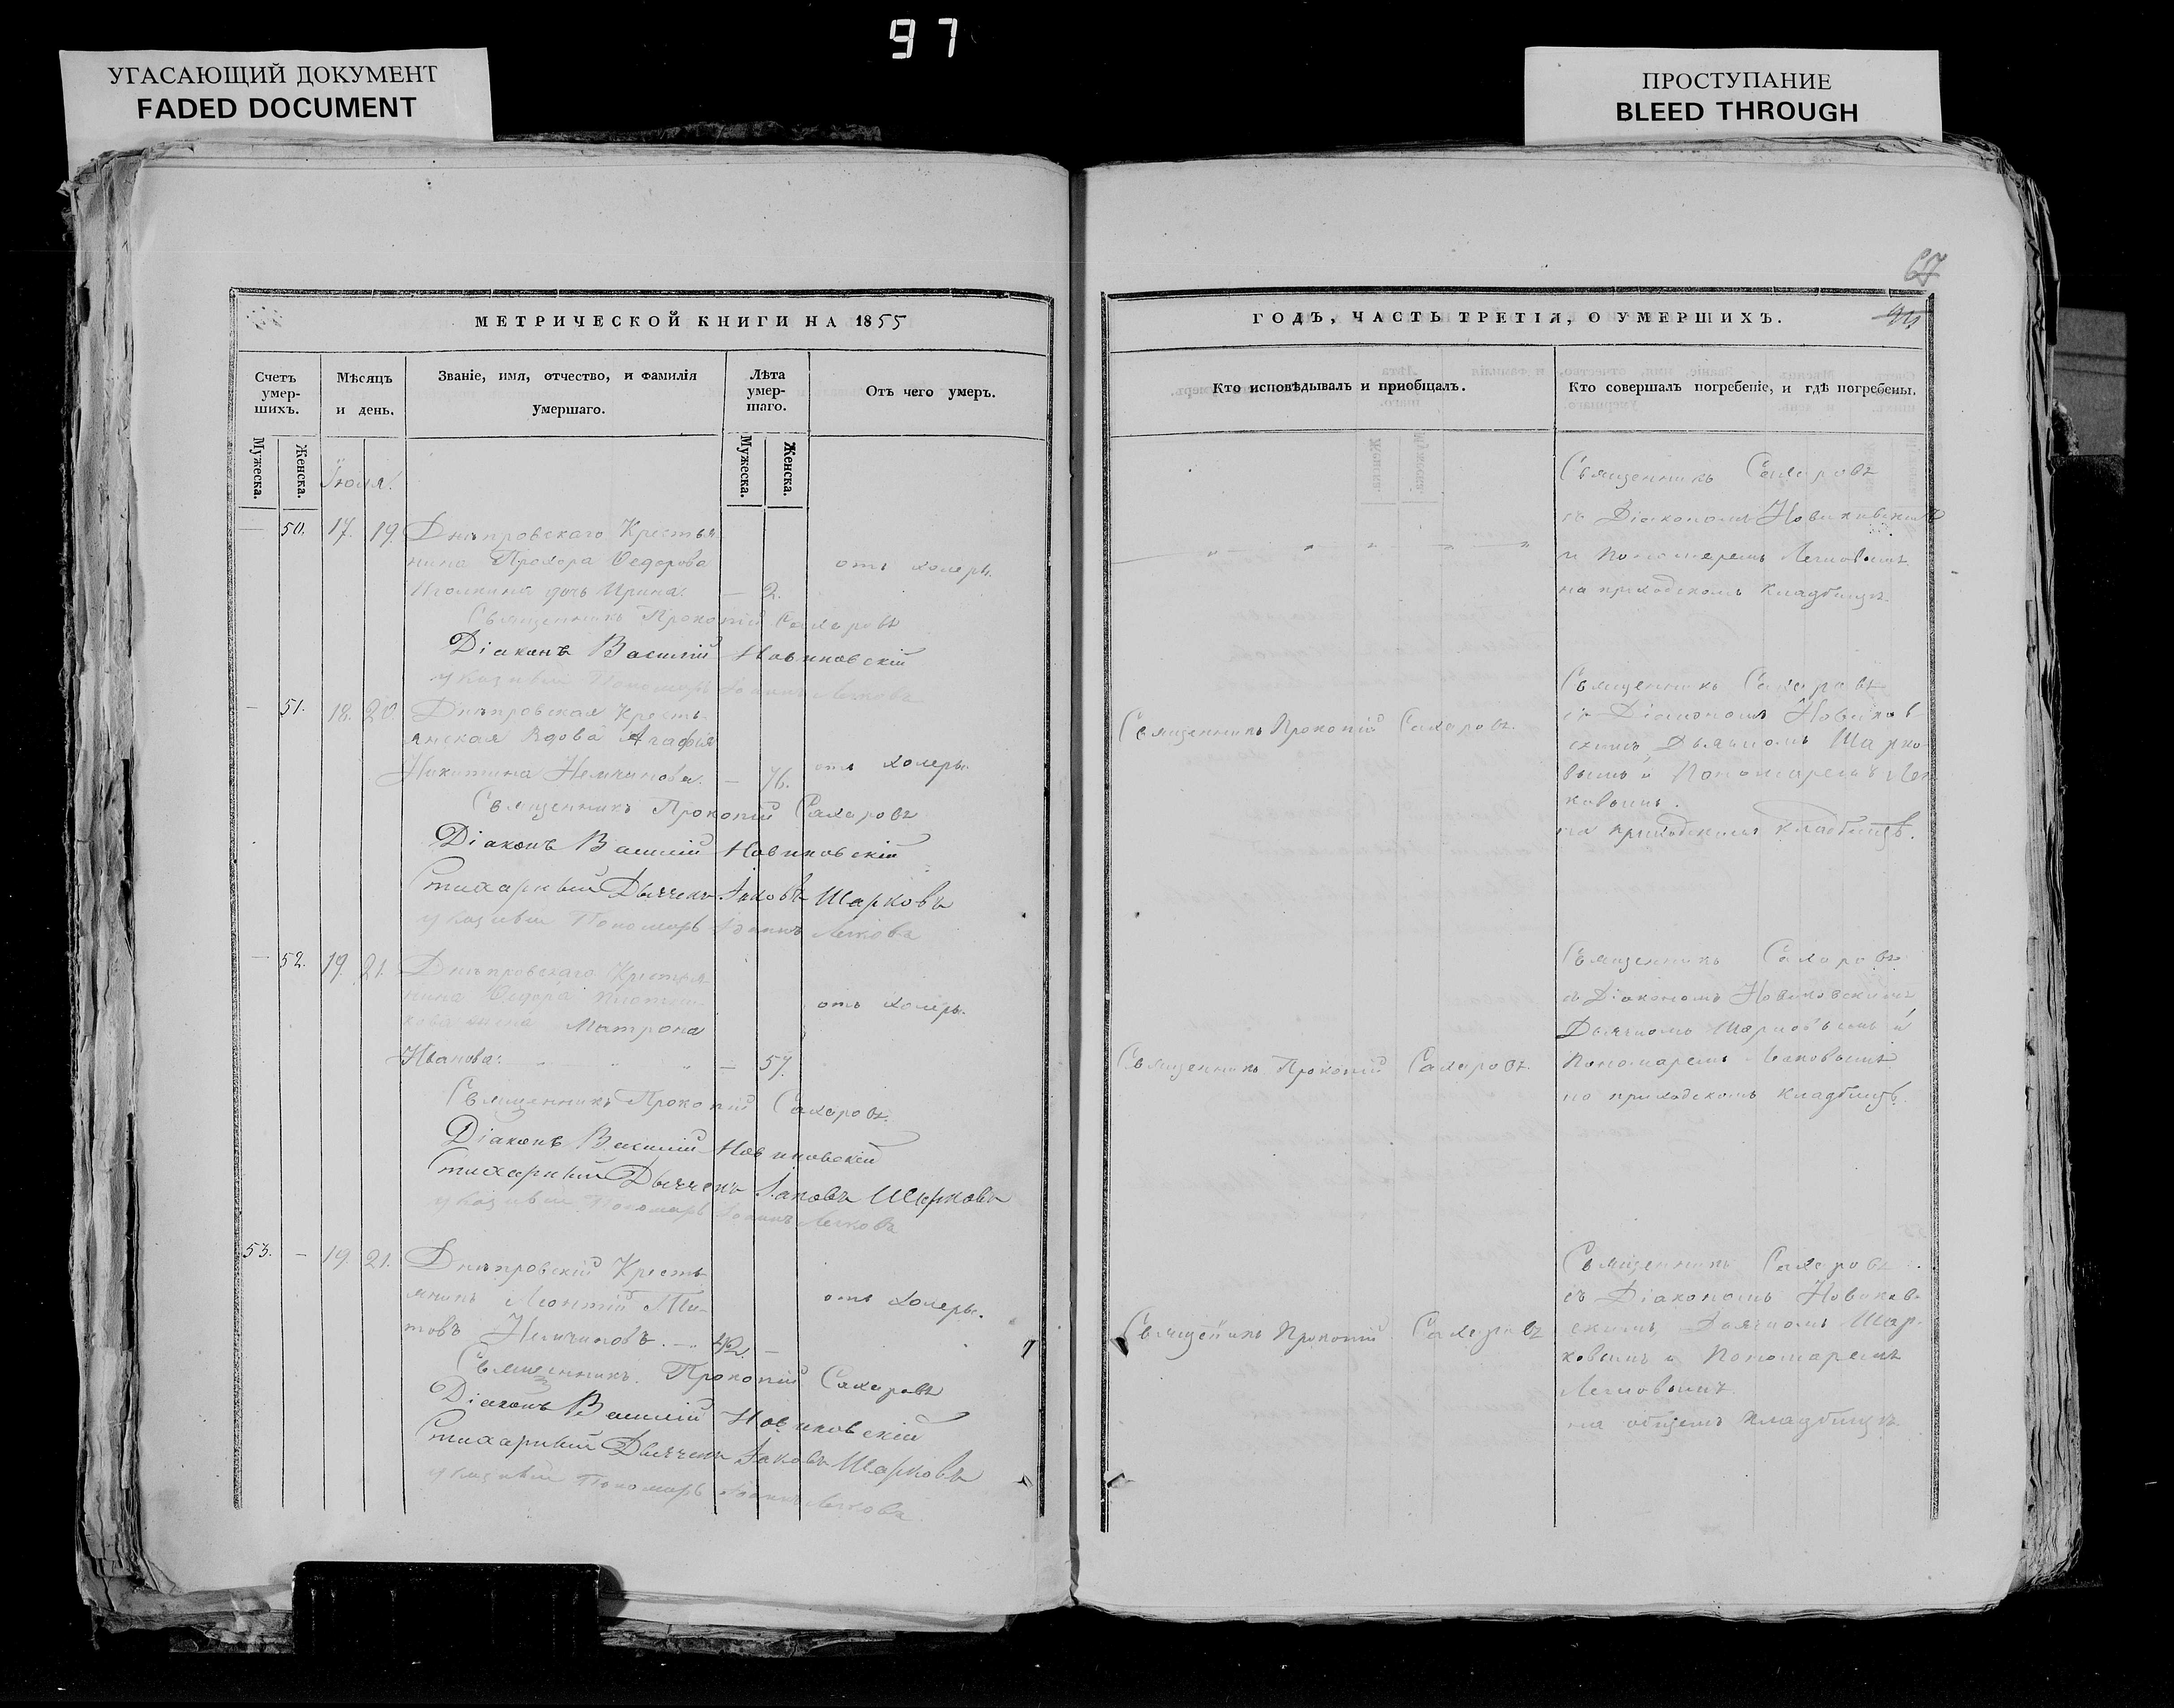 97
УГАСАЮЩИЙ ДОКУМЕНТ
FADED DOCUMENT
ПРОСТУПАНИЕ
BLEED THROUGH
67
МЕТРИЧЕСКОЙ КНИГИ НА 1855
Счетъ умер-шихъ.
Мѣсяцъ и день.
Званіе, имя, отчество, и фамилія умершаго.
Лѣта умер-шаго.
Отъ чего умеръ.
Мужеска.
Женска.
Мужеска.
Женска.
Іюля.
— 50. 17. 19. Днѣпровскаго Крестья
нина Прохора Ѳедорова
дочь Ирина. — 2.
отъ холеры.
Священникъ Прокопій Сахаровъ
Діаконъ Василій Новиковскій
указный Пономарь Іоаннъ
— 51. 18. 20. Днѣпровская Кресть-
янская Вдова Агафія
Никитина Немчинова. — 76.
отъ холеры.
Священникъ Прокопій Сахаровъ
Діаконъ Василій Новиковскій
Стихарный Дьячекъ Іаковъ Шарковъ
указный Пономарь Іоаннъ
— 52. 19. 21. Днѣпровскаго Крестья
нина Ѳедора
жена Матрона
Иванова. — 57.
отъ холеры.
Священникъ Прокопій Сахаровъ.
Діаконъ Василій Новиковскій
Стихарный Дьячекъ Іаковъ Шарковъ
указный Пономарь Іоаннъ
53. — 19. 21. Днѣпровскій Кресть
янинъ Леонтій Ти-
товъ Немчиновъ. — 42. —
отъ холеры.
Священникъ Прокопій Сахаровъ
Діаконъ Василій Новиковскій
Стихарный Дьячекъ Іаковъ Шарковъ
указный Пономарь Іоаннъ
ГОДЪ, ЧАСТЬ ТРЕТІЯ, О УМЕРШИХЪ.
Кто исповѣдывалъ и пріобщалъ.
Кто совершалъ погребеніе, и гдѣ погребены.
Священникъ Сахаровъ
съ Діакономъ Новиковскимъ
и Пономаремъ
на приходскомъ кладбищѣ.
Священникъ Прокопій Сахаровъ.
Священникъ Сахаровъ
съ Діакономъ Новиков
скимъ, Дьячкомъ Шарко
вымъ и Пономаремъ
ковымъ.
на приходскомъ кладбищѣ.
Священникъ Прокопій Сахаровъ.
Священникъ Сахаровъ
съ Діакономъ Новиковскимъ
Дьячкомъ Шарковымъ и
Пономаремъ
на приходскомъ кладбищѣ.
Священникъ Прокопій Сахаровъ
Священникъ Сахаровъ
съ Діакономъ Новиков-
скимъ, Дьячкомъ Шар-
ковымъ и Пономаремъ
на общемъ кладбищѣ.